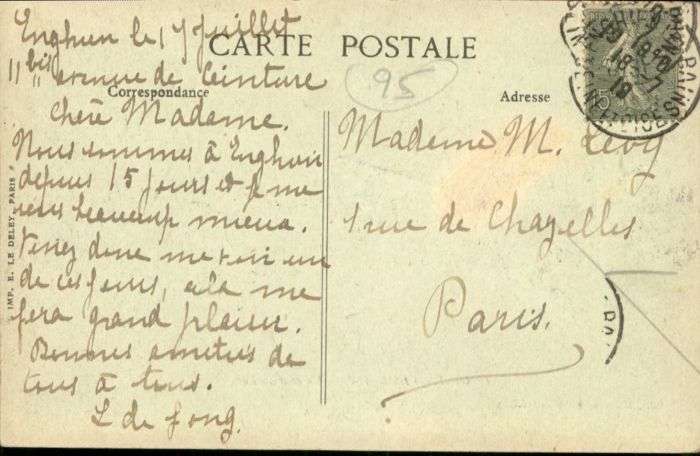 Enghien le 17 Juillet
11 bis avenue de Ceinture
CARTE POSTALE
95
Correspondance
Adresse
Chère Madame.
Nous sommes à Enghien
depuis 15 jours et je me
beaucoup mieux.
Venez donc me voir un
de ces jours, cela me
fera grand plaisir.
Bonnes amitiés de
tous à tous.
L de Jong.
Madame M. Levy
1 rue de Chazelles
Paris.
IMP. E. LE DELEY, PARIS